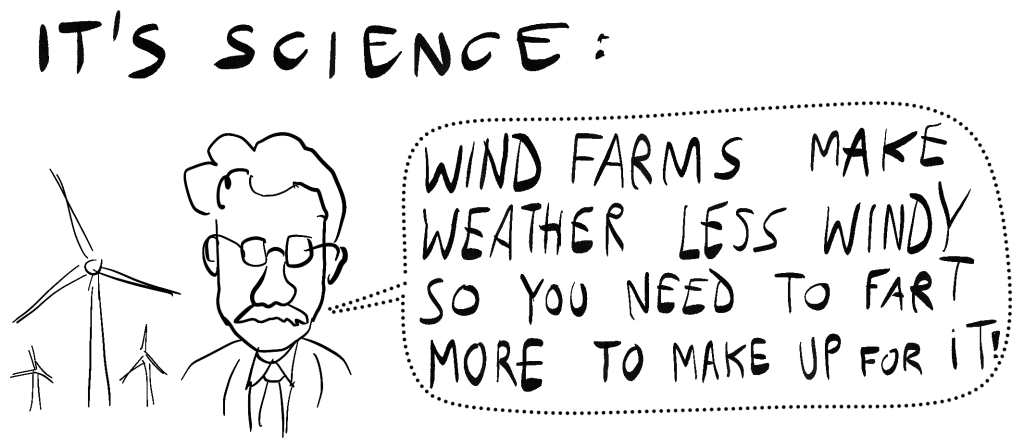 IT'S SCIENCE:
WIND FARMS MAKE
WEATHER LESS WINDY
SO YOU NEED TO FART
MORE TO MAKE UP FOR IT!